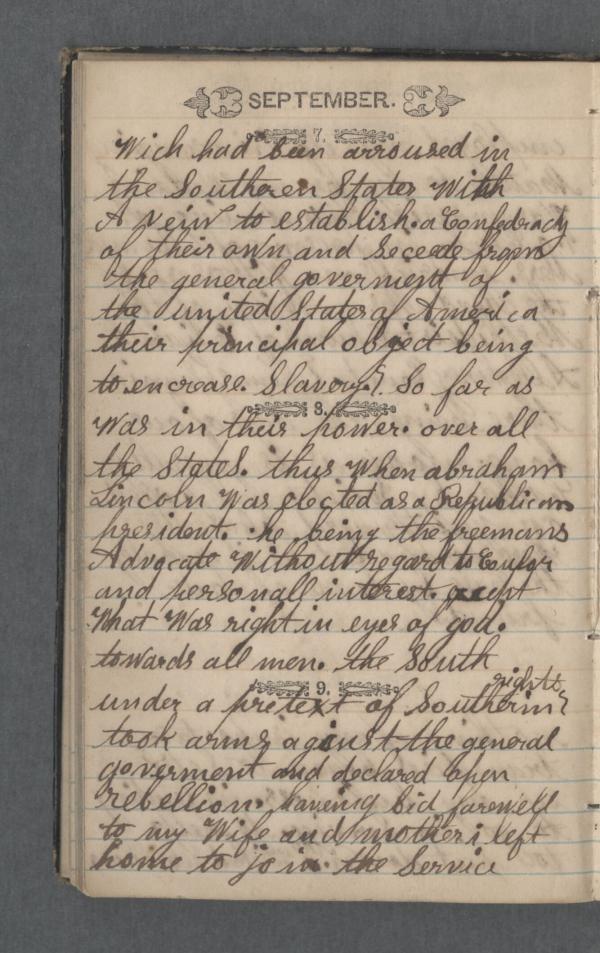 SEPTEMBER.
7.
Wich had been arroused in
the Southeren States With
A veiw to establish. a Confedracy
of their own and Seceede from
the general goverment of
the united States of America
their principal object being
to. encrease. Slavery. So far as
8.
Was in their power. over all
the States. thus When abraham
Lincoln Was elected as a Republican
president. he being the freemans
Advocate Without regard to Coulor
and personall interest. except
What Was right in eyes of god.
towards all men. the South
9.
rights
under a pretext of Southern
took arms against the general
goverment and declared open
rebellion. haveing bid farewell
to my Wife and mother i left
home to join the Service